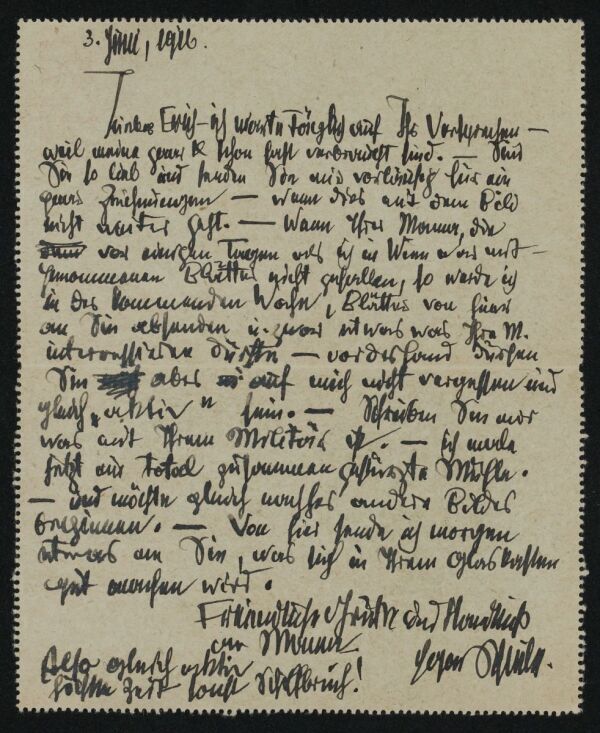 3. Juni, 1916.
Lieber Erich – ich warte täglich auf Ihr Versprechen –
weil meine ganz K schon fast verbraucht sind. — Sind
Sie so lieb und senden Sie mir vorläufig für ein
ganz — wenn dies mit dem Bild
nicht weiter geht. — Wenn Ihrer Mama, die
vor einigen Tagen als ich in Wien war mit-
genommenen Blätter nicht gefallen, so werde ich
in der kommenden Woche, Blätter von hier
an Sie absenden u. zwar etwas was Ihre M.
interessieren dürfte — vorderhand dürfen
Sie aber auf mich nicht vergessen und
gleich „aktiv" sein. — Schreiben Sie mir
was mit Ihrem Militär ist. — ich male
jetzt eine total zusammengestürzte Mühle.
— und möchte gleich nachher andere Bilder
beginnen. — Von hier sende ich morgen
etwas an Sie, was sich in Ihrem Glaskasten
gut machen wird.
Freundliche Grüße und Handkuß
an Mama
Egon Schiele.
Also gleich aktiv
höchste Zeit sonst Schiffbruch!